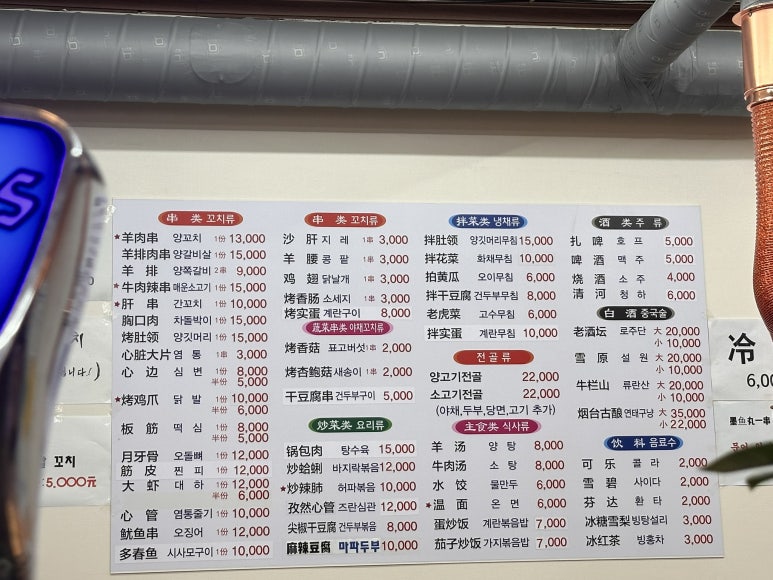 串 类 꼬치류
★羊肉串 양꼬치 1份 13,000
羊排肉串 양갈비살 1份 15,000
羊 排 양쪽갈비 2串 9,000
★牛肉辣串 매운소고기 1份 15,000
★肝 串 간꼬치 1份 10,000
胸口肉 차돌박이 1份 15,000
烤肚领 양깃머리 1份 15,000
心肝大片 염 통 1串 3,000
心 边 심 변 1份 8,000
半份 5,000
★烤鸡爪 닭 발 1份 10,000
半份 6,000
板 筋 떡 심 1份 8,000
半份 5,000
月牙骨 오돌뼈 1份 12,000
筋 皮 찐 피 1份 12,000
大 虾 대 하 1份 12,000
半份 6,000
心 管 염통줄기 1份 10,000
鱿鱼串 오징어 1份 12,000
多春鱼 시사모구이 1份 10,000
串 类 꼬치류
沙 肝 지 레 1串 3,000
羊 腰 콩 팥 1串 3,000
鸡 翅 닭날개 1串 3,000
烤香肠 소세지 1串 3,000
烤实蛋 계란구이 8,000
蔬菜串类 야채꼬치류
烤香菇 표고버섯 1串 2,000
烤杏鲍菇 새송이 1串 2,000
干豆腐串 건두부구이 5,000
炒菜类 요리류
锅包肉 탕수육 15,000
炒蛤蜊 바지락볶음 12,000
★炒辣肺 허파볶음 10,000
孜然心管 즈란심관 12,000
尖椒干豆腐 건두부볶음 8,000
麻辣豆腐 마파두부 10,000
拌菜类 냉채류
拌肚领 양깃머리무침 15,000
拌花菜 화채무침 10,000
拍黄瓜 오이무침 6,000
拌干豆腐 건두부무침 8,000
老虎菜 고수무침 6,000
拌实蛋 계란무침 10,000
전골류
양고기전골 22,000
소고기전골 22,000
(야채,두부,당면,고기 추가)
主食类 식사류
羊 汤 양 탕 8,000
牛肉汤 소 탕 8,000
水 饺 물만두 6,000
★温 面 온 면 6,000
蛋炒饭 계란볶음밥 7,000
茄子炒饭 가지볶음밥 7,000
酒 类 주 류
扎 啤 호 프 5,000
啤 酒 맥 주 5,000
烧 酒 소 주 4,000
清 河 청 하 6,000
白 酒 중국술
老酒坛 로주단 大 20,000
小 10,000
雪 原 설 원 大 20,000
小 10,000
牛栏山 류란산 大 20,000
小 10,000
烟台古酿 연태구냥 大 35,000
小 22,000
饮 料 음료수
可 乐 콜 라 2,000
雪 碧 사이다 2,000
芬 达 환 타 2,000
冰糖雪梨 빙탕설리 3,000
冰红茶 빙홍차 3,000
니다!)
꼬치
5,000元
冷
6,00
墨鱼丸一串